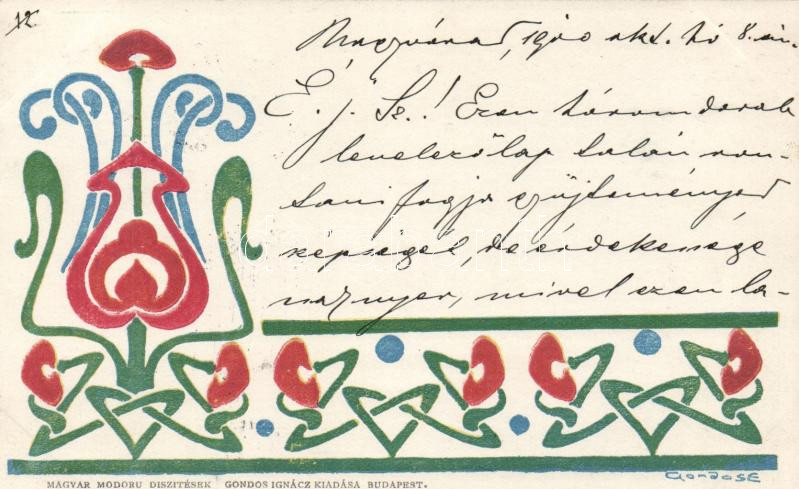 12.
Nagyvárad, 1900 okt. hó 8.-án.
É. j. Sz.! Ezen három darab
levelezőlap talán ron-
tani fogja gyűjteményed
képségét, de érdekessége
nagyon, mivel ezen la-
GONDOS E
MAGYAR MODORU DISZITÉSEK GONDOS IGNÁCZ KIADÁSA BUDAPEST.